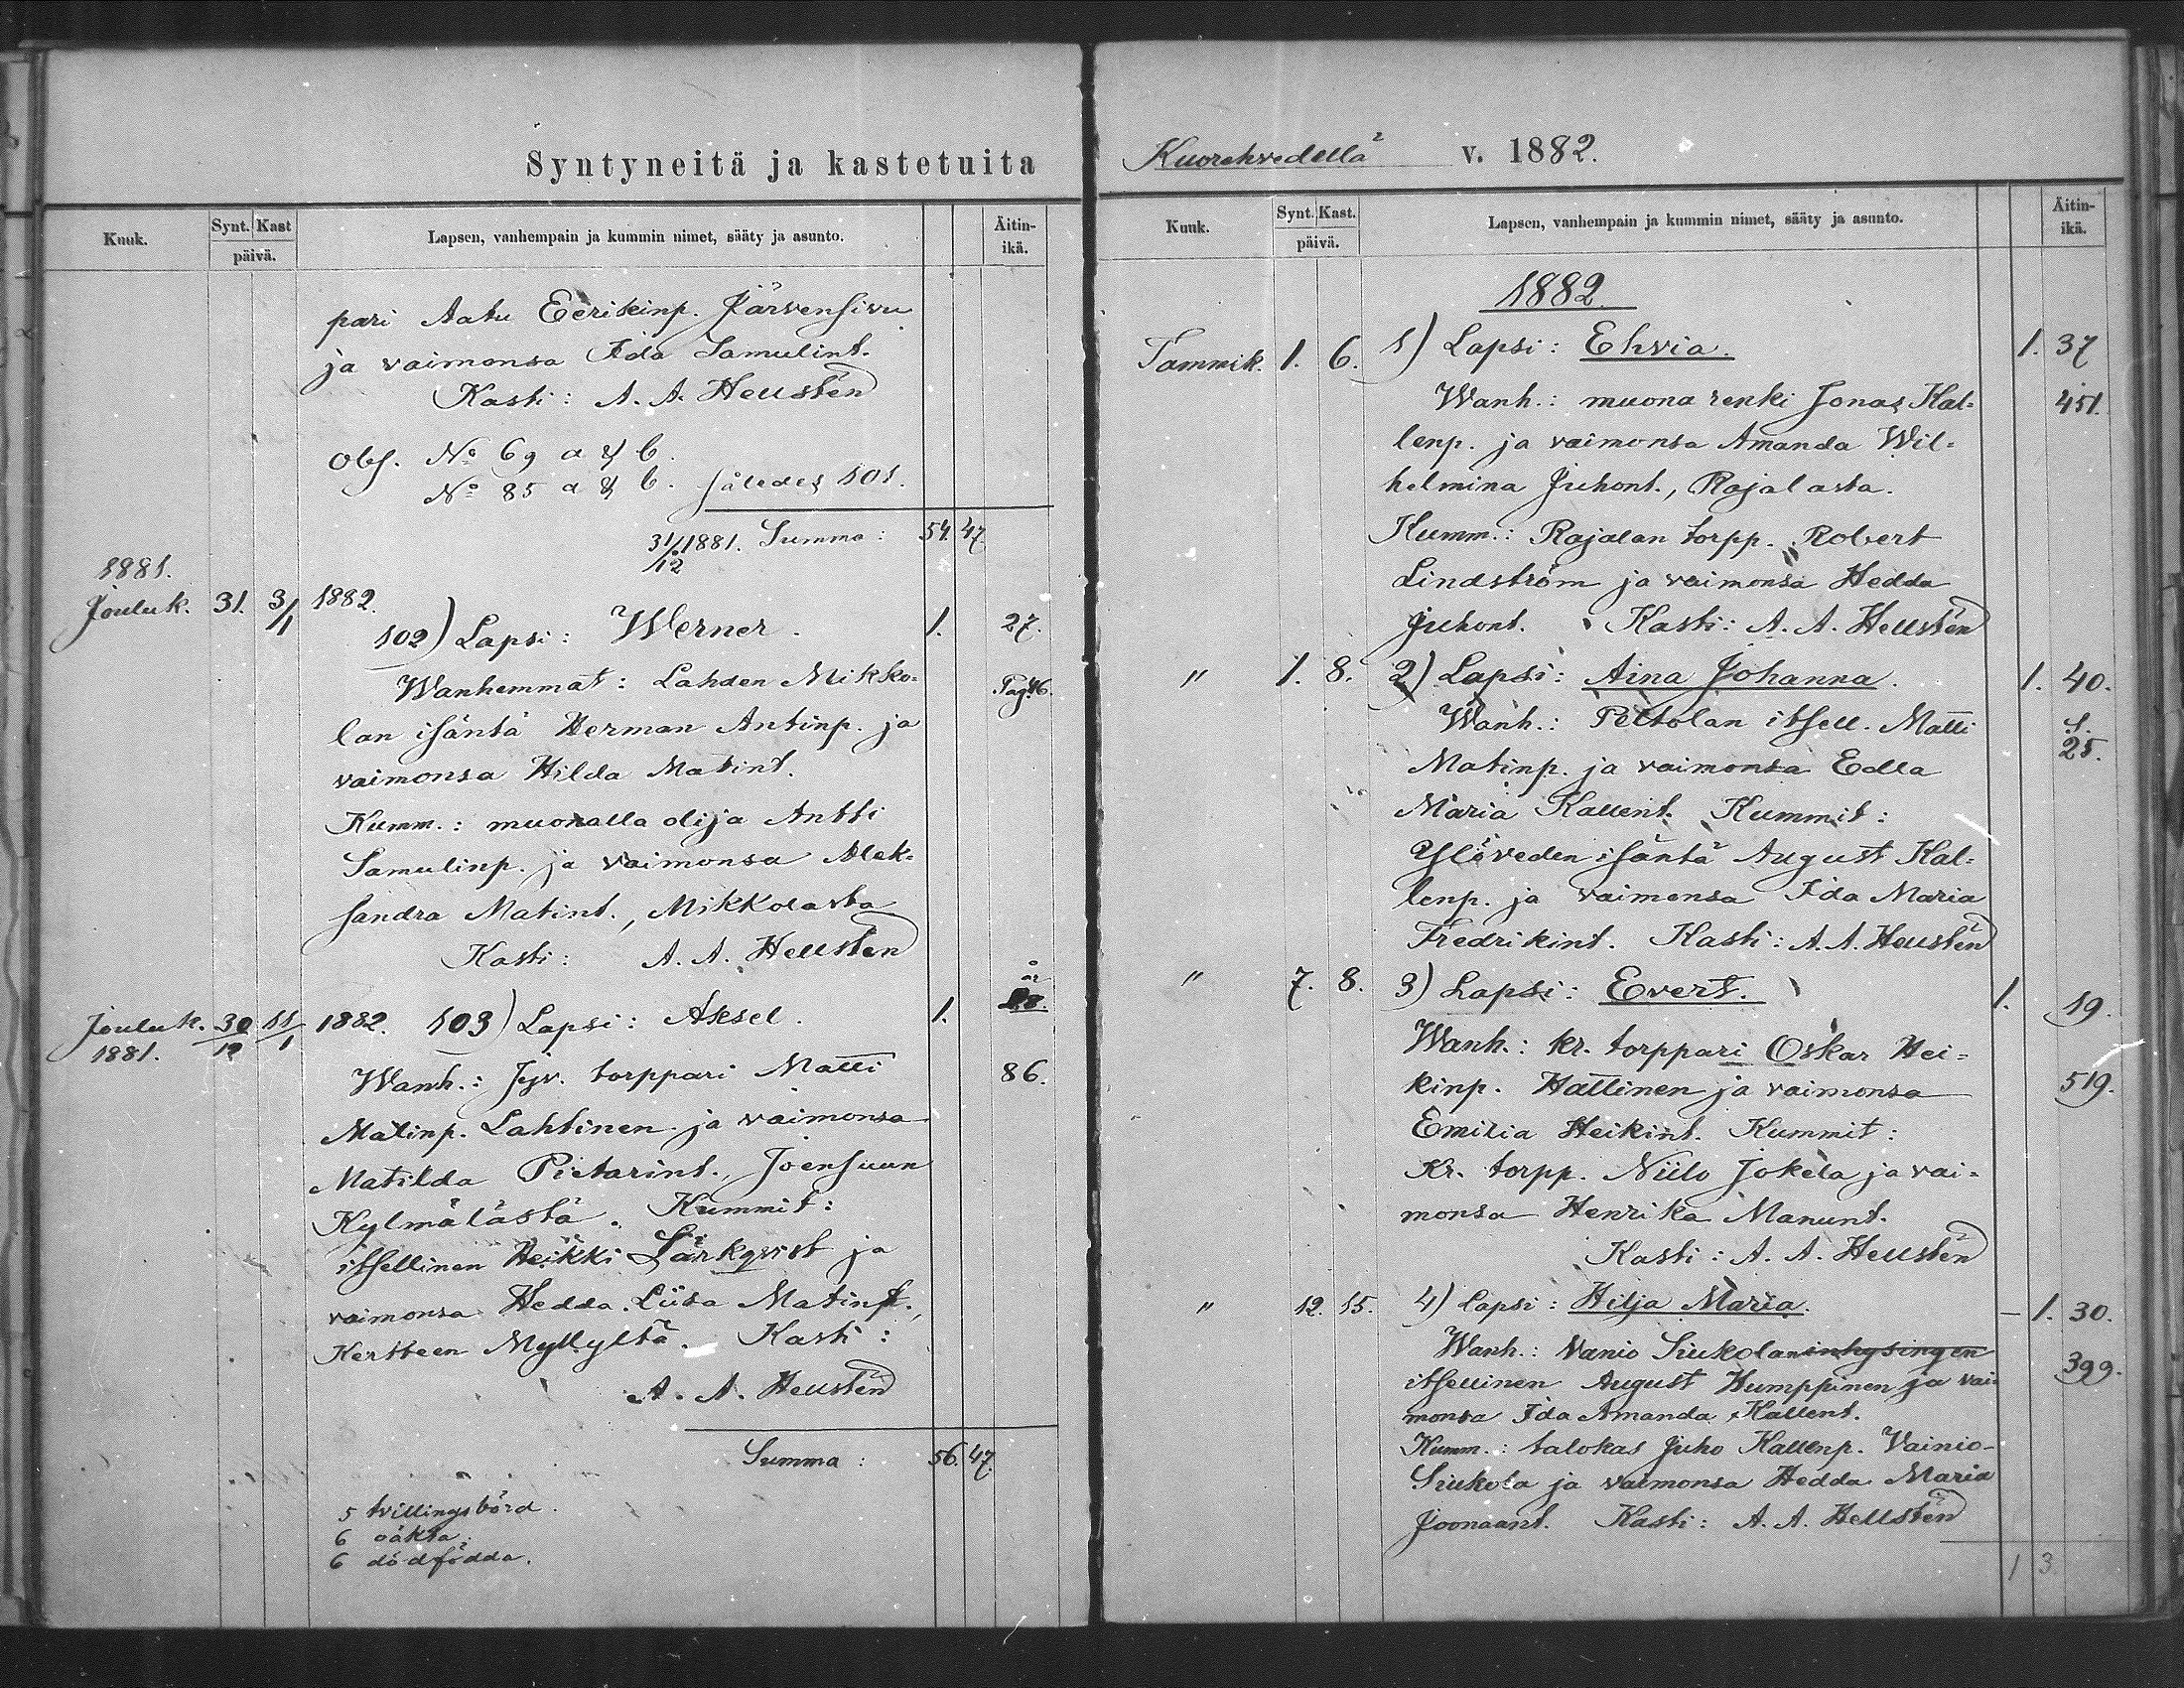 Syntyneitä ja kastetuita
Kuuk. Synt. Kast päivä. Lapsen, vanhempain ja kummin nimet, sääty ja asunto. Äitin-ikä.
pari Aatu Eerikinp. Järvensivu
ja vaimonsa Ida Samulint.
Kasti: A. A. Hellstén
Obs. No 69 a & b.
No 85 a & b. således 101.
31/12 1881. Summa: 54. 47.
1881.
Jouluk. 31. 3/1 1882.
102) Lapsi: Werner. 1. 27.
Wanhemmat: Lahden Mikko- Pag. 46.
lan isäntä Herman Antinp. ja
vaimonsa Hilda Matint.
Kumm.: muonalla olija Antti
Samulinp. ja vaimonsa Alek-
sandra Matint., Mikkolasta
Kasti: A. A. Hellstén
Jouluk. 30/12 11/1 1882. 103) Lapsi: Aksel. 1. år 28.
1881.
Wanh.: Jyv. torppari Matti 86.
Matinp. Lahtinen ja vaimonsa
Matilda Pietarint., Joensuun
Kylmälästä. Kummit:
itsellinen Heikki Lärkqvist ja
vaimonsa Hedda Liisa Matint.,
Kertteen Myllyltä. Kasti:
A. A. Hellstén
Summa: 56. 47.
5 tvillingsbörd.
6 oäkta.
6 dödfödda.
Kuorehvedellä v. 1882.
Kuuk. Synt. Kast. päivä. Lapsen, vanhempain ja kummin nimet, sääty ja asunto. Äitin-ikä.
1882.
Tammik. 1. 6. 1) Lapsi: Ehvia. 1. 37
Wanh.: muona renki Jonas Kal- 451.
lenp. ja vaimonsa Amanda Wil-
helmina Juhont., Rajalasta.
Kumm.: Rajalan torpp. Robert
Lindström ja vaimonsa Hedda
Juhont. Kasti: A. A. Hellstén
" 1. 8. 2) Lapsi: Aina Johanna. 1. 40.
Wanh.: Peltolan itsell. Matti S.
Matinp. ja vaimonsa Edla 25.
Maria Kallent. Kummit:
Ylöveden isäntä August Kal-
lenp. ja vaimonsa Ida Maria
Fredrikint. Kasti: A. A. Hellstén
" 7. 8. 3) Lapsi: Evert. 1. 19.
Wanh.: kr. torppari Oskar Hei-
kinp. Hallinen ja vaimonsa 519.
Emilia Heikint. Kummit:
Kr. torpp. Niilo Jokela ja vai-
monsa Henrika Manunt.
Kasti: A. A. Hellstén
" 12. 15. 4) Lapsi: Hilja Maria. – 1. 30.
Wanh.: Vanio Siukolan inhysingen
itsellinen August Humppinen ja vai- 399.
monsa Ida Amanda Kallent.
Kumm.: talokas Juho Kallenp. Vainio-
Siukola ja vaimonsa Hedda Maria
Joonaant. Kasti: A. A. Hellstén
1 3